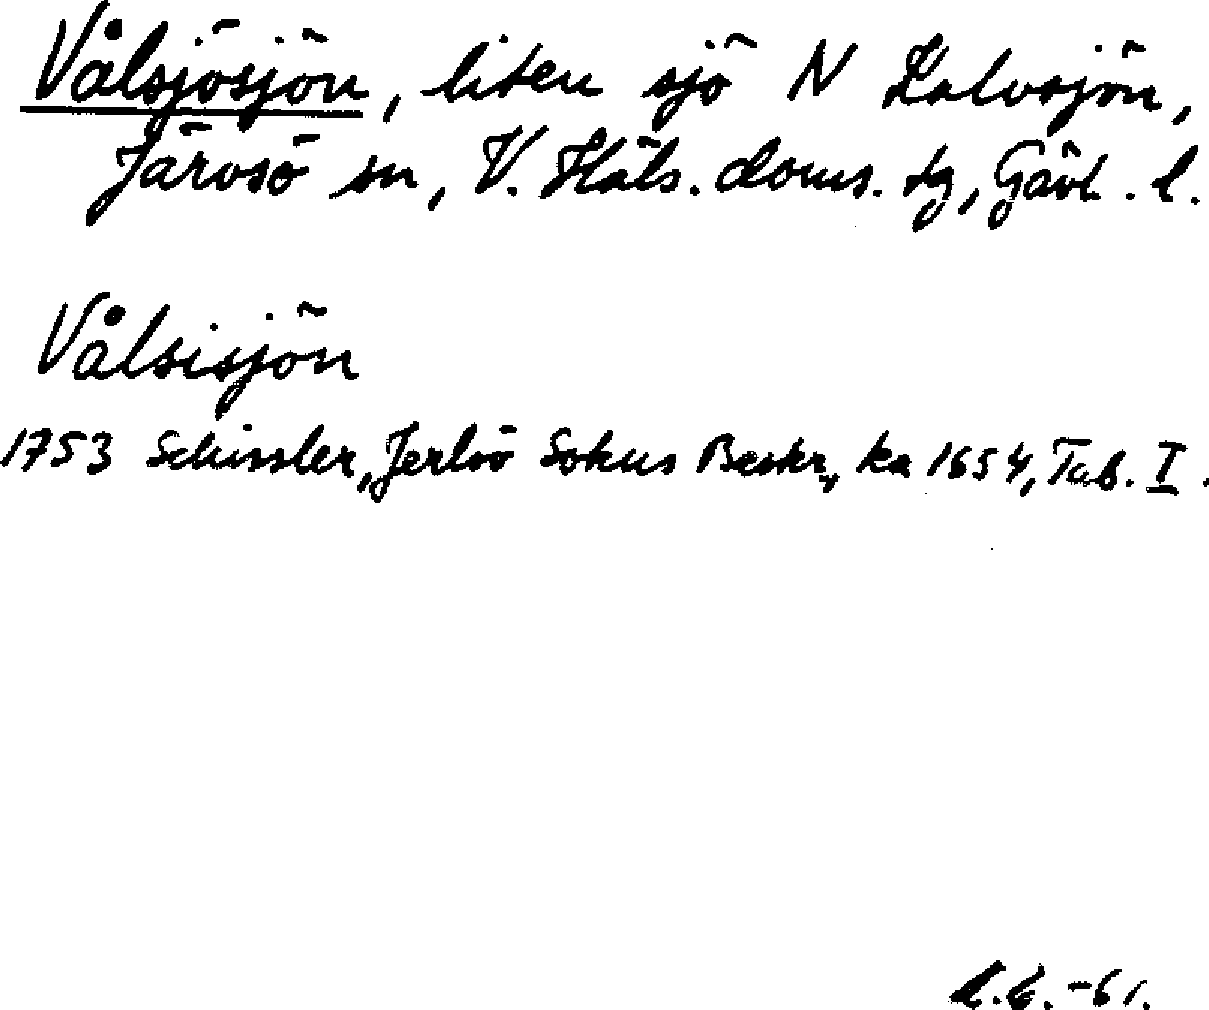 Vålsjösjön, liten sjö N Kalvsjön,
Järvsö sn, V. Häls. doms. tg, Gävl. l.
Vålsisjön
1753 Schissler, Jerlsö Sokns Beskr., ka 1654, Tab. I.
-61.